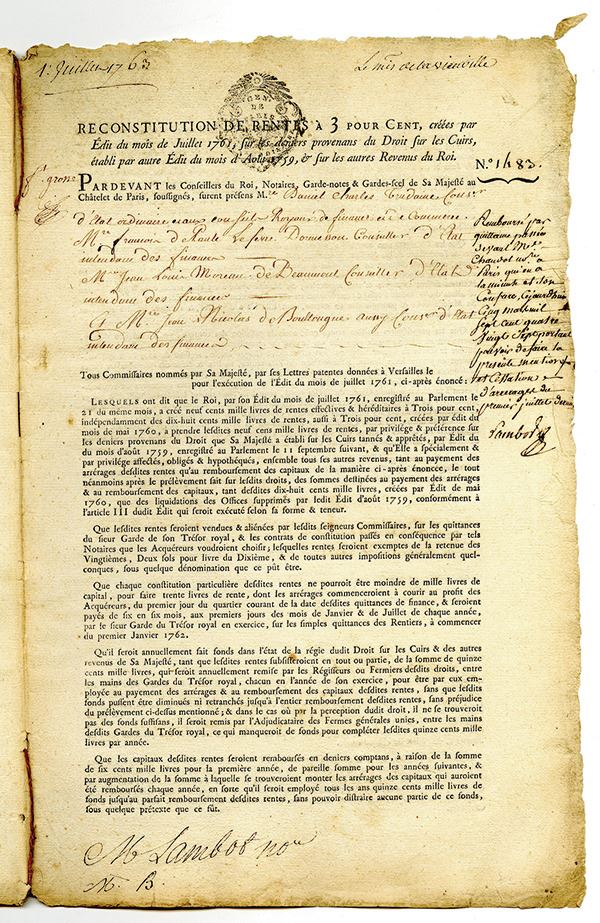 1er Juillet 1763
Le Mis de la vieuville
GEN.
DE
PARIS
RECONSTITUTION DE RENTES à 3 POUR CENT, créées par
Édit du mois de Juillet 1761, sur les deniers provenans du Droit sur les Cuirs,
établi par autre Édit du mois d'Août 1759, & sur les autres Revenus du Roi.
N.º 1483.
PARDEVANT les Conseillers du Roi, Notaires, Garde-notes & Gardes-scel de Sa Majesté au
Châtelet de Paris, soussignés, furent présens M.re Daniel Charles Trudaine Cons.er
d'Etat ordinaire et aux conseils Royaux de finances et de Commerce.
M.re françois de Paule Lefevre Dormesson Conseiller d'Etat
intendant des finances
M.re Jean Louis Moreau de Beaumont Conseiller d'Etat
intendant des finances
Et M.re Jean Nicolas de Boullongne aussy Cons.er d'Etat
intendant des finances
Remboursé par
quittance passée
devant Me.
Chaudot no.re à
Paris qui en a
la minute et son
Confrere, Cejourd'huy
Cinq mai mil
sept cent quatre
vingt sept portant
pouvoir de faire la
presente mention
et Cessation
d'arrerages du
premier juillet
Lambot
Tous Commissaires nommés par Sa Majesté, par ses Lettres patentes données à Versailles le
pour l'exécution de l'Édit du mois de juillet 1761, ci-après énoncé:
LESQUELS ont dit que le Roi, par son Édit du mois de juillet 1761, enregistré au Parlement le
21 du même mois, a créé neuf cents mille livres de rentes effectives & héréditaires à Trois pour cent,
indépendamment des dix-huit cents mille livres de rentes, aussi à Trois pour cent, créées par édit du
mois de mai 1760, à prendre lesdites neuf cens mille livres de rentes, par privilége & préférence sur
les deniers provenans du Droit que Sa Majesté a établi sur les Cuirs tannés & apprêtés, par Édit du
du mois d'août 1759, enregistré au Parlement le 11 septembre suivant, & qu'Elle a spécialement &
par privilége affectés, obligés & hypothéqués, ensemble tous ses autres revenus, tant au payement des
arrérages desdites rentes qu'au remboursement des capitaux de la manière ci-après énoncée, le tout
néanmoins après le prélèvement fait sur lesdits droits, des sommes destinées au payement des arrérages
& au remboursement des capitaux, tant desdites dix-huit cents mille livres, créées par Édit de mai
1760, que des liquidations des Offices supprimés par ledit Édit d'août 1759, conformément à
l'article III dudit Édit qui sera exécuté selon sa forme & teneur.
Que lesdites rentes seroient vendues & aliénées par lesdits seigneurs Commissaires, sur les quittances
du sieur Garde de son Trésor royal, & les contrats de constitution passés en conséquence par tels
Notaires que les Acquéreurs voudroient choisir; lesquelles rentes seroient exemptes de la retenue des
Vingtièmes, Deux sols pour livre du Dixième, & de toutes autres impositions généralement quel-
conques, sous quelque dénomination que ce pût être.
Que chaque constitution particulière desdites rentes ne pourroit être moindre de mille livres de
capital, pour faire trente livres de rente, dont les arrérages commenceroient à courir au profit des
Acquéreurs, du premier jour du quartier courant de la date desdites quittances de finance, & seroient
payés de six en six mois, aux premiers jours des mois de Janvier & de Juillet de chaque année,
par le sieur Garde du Trésor royal en exercice, sur les simples quittances des Rentiers, à commencer
du premier Janvier 1762.
Qu'il seroit annuellement fait fonds dans l'état de la régie dudit Droit sur les Cuirs & des autres
revenus de Sa Majesté, tant que lesdites rentes subsisteroient en tout ou partie, de la somme de quinze
cents mille livres, qui seroit annuellement remise par les Régisseurs ou Fermiers desdits droits, entre
les mains des Gardes du Trésor royal, chacun en l'année de son exercice, pour être par eux em-
ployée au payement des arrérages & au remboursement des capitaux desdites rentes, sans que lesdits
fonds pussent être diminués ni retranchés jusqu'à l'entier remboursement desdites rentes, sans préjudice
du prélèvement ci-dessus mentionné; & dans le cas où par la perception dudit droit, il ne se trouveroit
pas des fonds suffisans, il seroit remis par l'Adjudicataire des Fermes générales unies, entre les mains
desdits Gardes du Trésor royal, ce qui manqueroit de fonds pour compléter lesdites quinze cents mille
livres par année.
Que les capitaux desdites rentes seroient remboursés en deniers comptans, à raison de la somme
de six cents mille livres pour la première année, de pareille somme pour les années suivantes, &
par augmentation de la somme à laquelle se trouveroient monter les arrérages des capitaux qui auroient
été remboursés chaque année, en sorte qu'il seroit employé tous les ans quinze cents mille livres de
fonds jusqu'au parfait remboursement desdites rentes, sans pouvoir distraire aucune partie de ce fonds,
sous quelque prétexte que ce fût.
Me Lambot no.re
N. B.